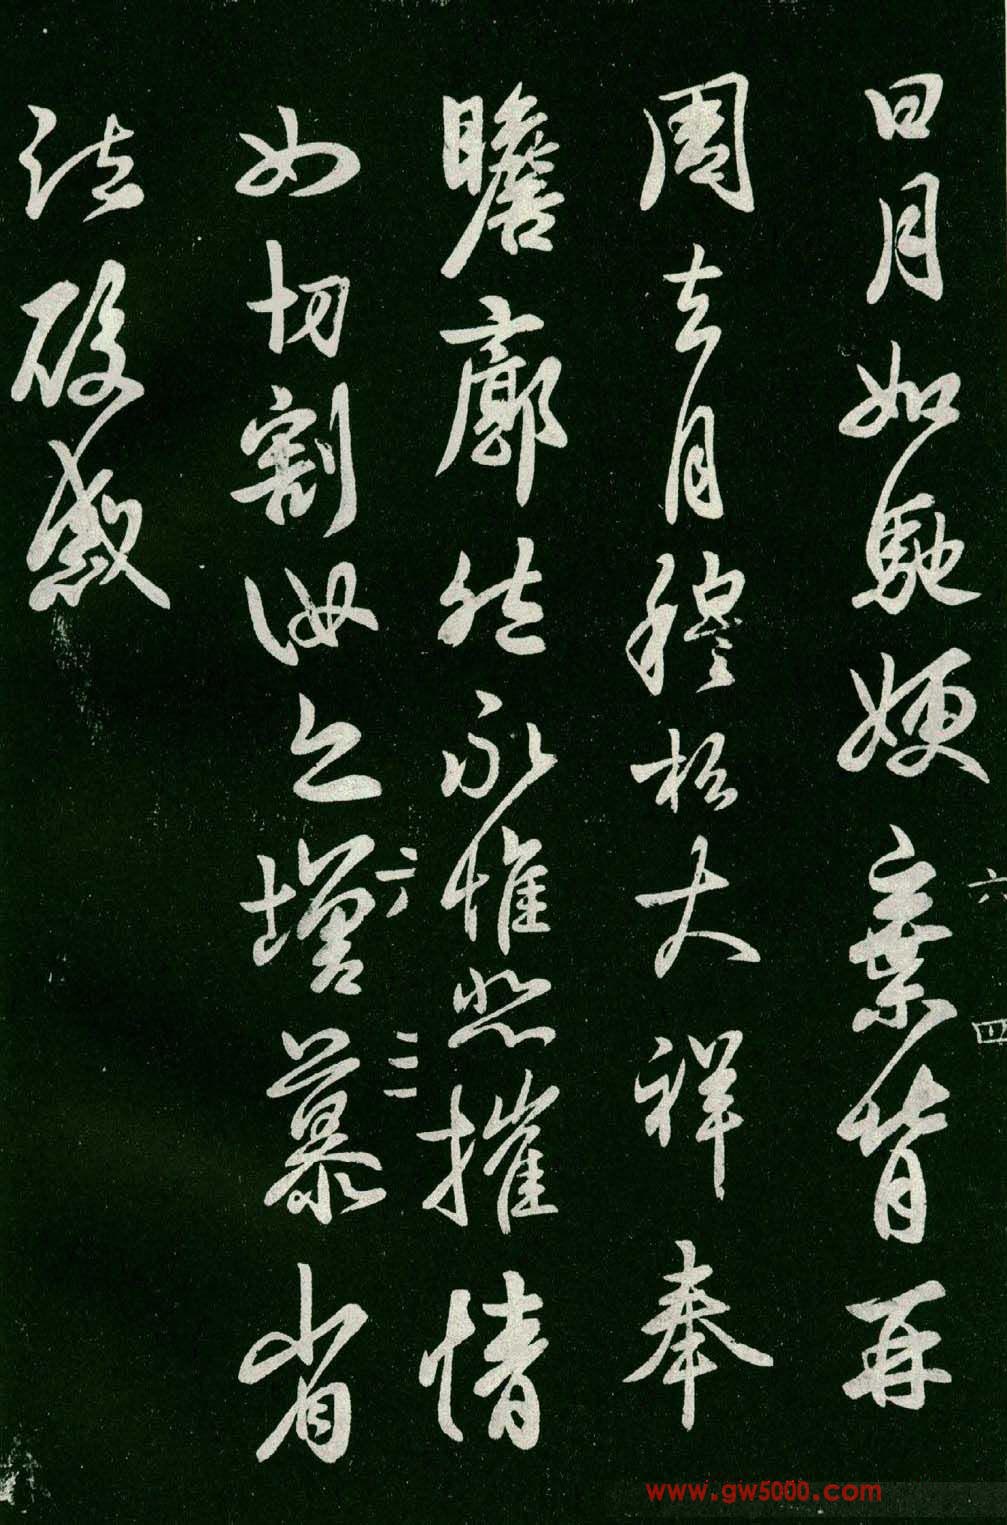 日月如馳㛐棄背再
周去月穆松大祥奉
瞻廓然永惟悲摧情
如切割汝亦增慕省
疏酸感
六 四
六 三
www.gw5000.com